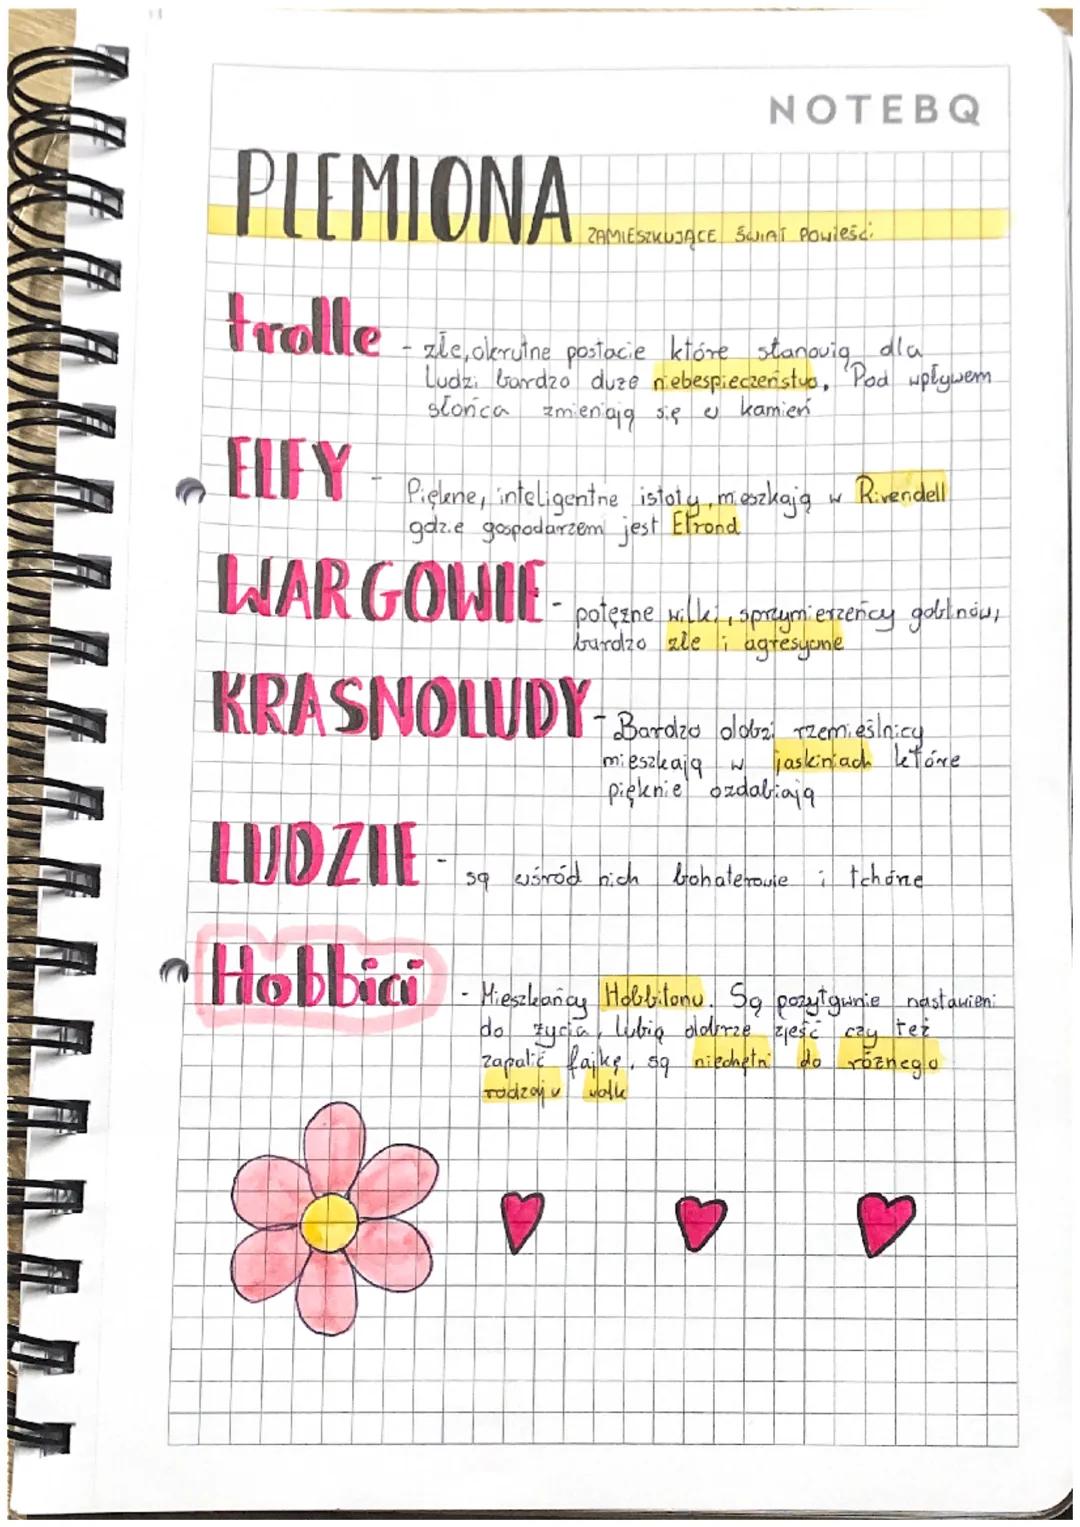 NOTEBQ
PLEMIONA ZAMIESZKUJĄCE ŚWIAT POWIEŚCI
trolle - złe, okrutne postacie które stanowią dla
ludzi bardzo duże niebespieczeństwo. Pod wpływem
słońca zmieniają się w kamień
ELFY - Piękne, inteligentne istoty, mieszkają w Rivendell
gdzie gospodarzem jest Elrond
WARGOWIE - potężne wilki, sprzymierzeńcy goblinów,
bardzo złe i agresywne
KRASNOLUDY - Bardzo dobzi rzemieślnicy
mieszkają w jaskiniach które
pięknie ozdabiają
LUDZIE - są wśród nich bohaterowie i tchórze
Hobbici - Mieszkańcy Hobbitonu. Są pozytywnie nastawieni
do życia, lubią dobrze zjeść czy też
zapalić fajkę, są niechętni do różnego
rodzaju walk